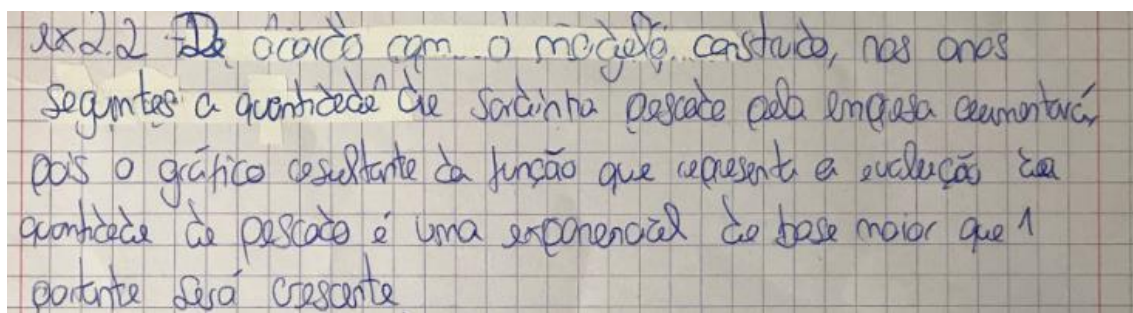 ex2.2 De acordo com o modelo construido, nos anos
seguintes a quantidade de sardinha pescada pela empresa aumentará,
pois o gráfico resultante da função que representa a evolução da
quantidade de pescado é uma exponencial de base maior que 1
portante será crescente